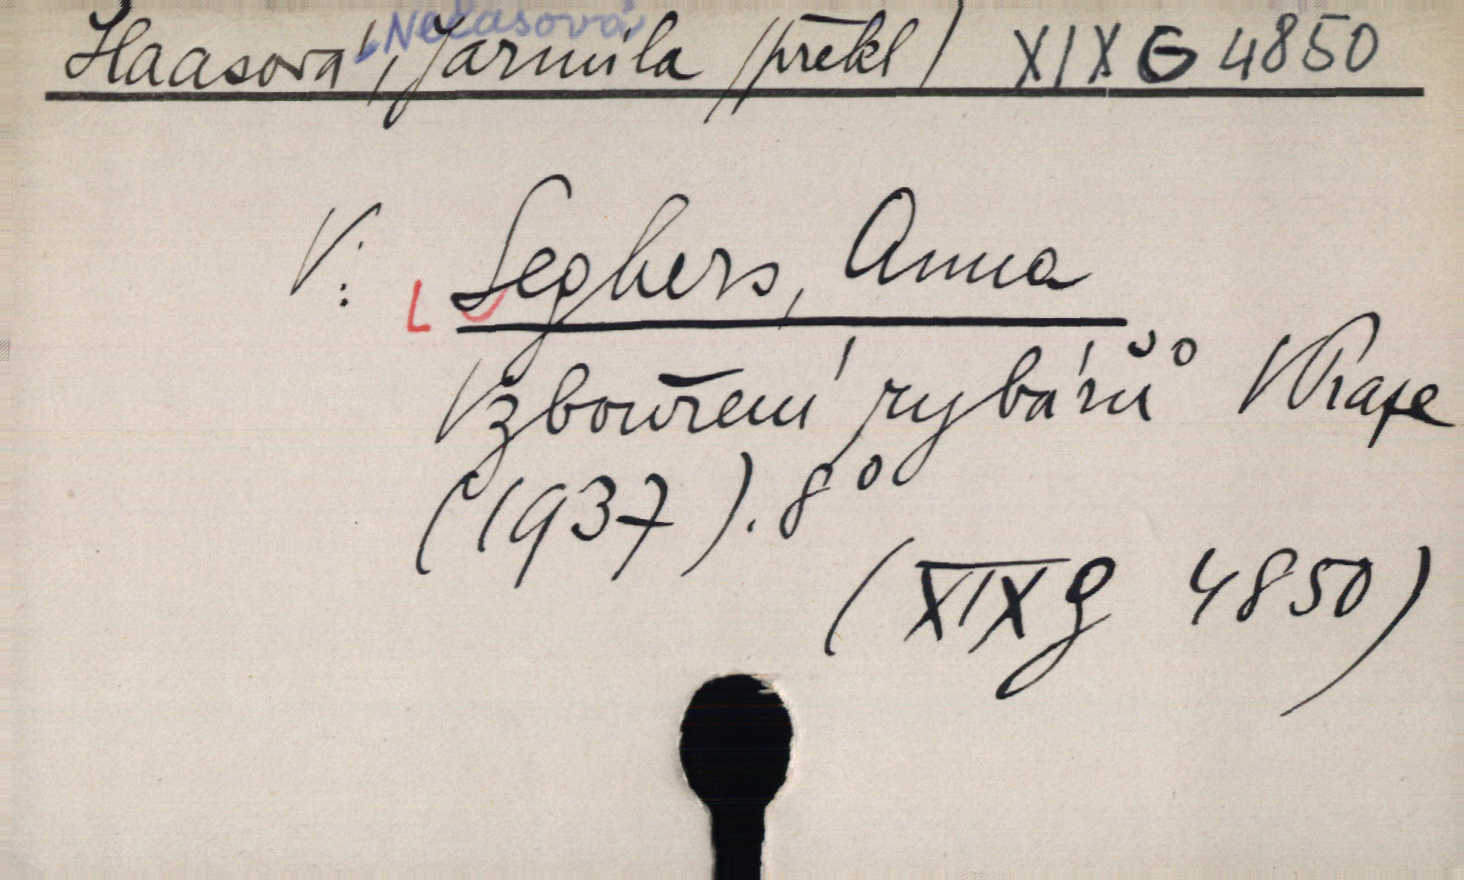 Haasova-Nečasová, Jarmila /překl/ XIX G 4850
V: Seghers, Anna
Vzbouření rybářů V Praze
(1937). 8°
(XIX g 4850)